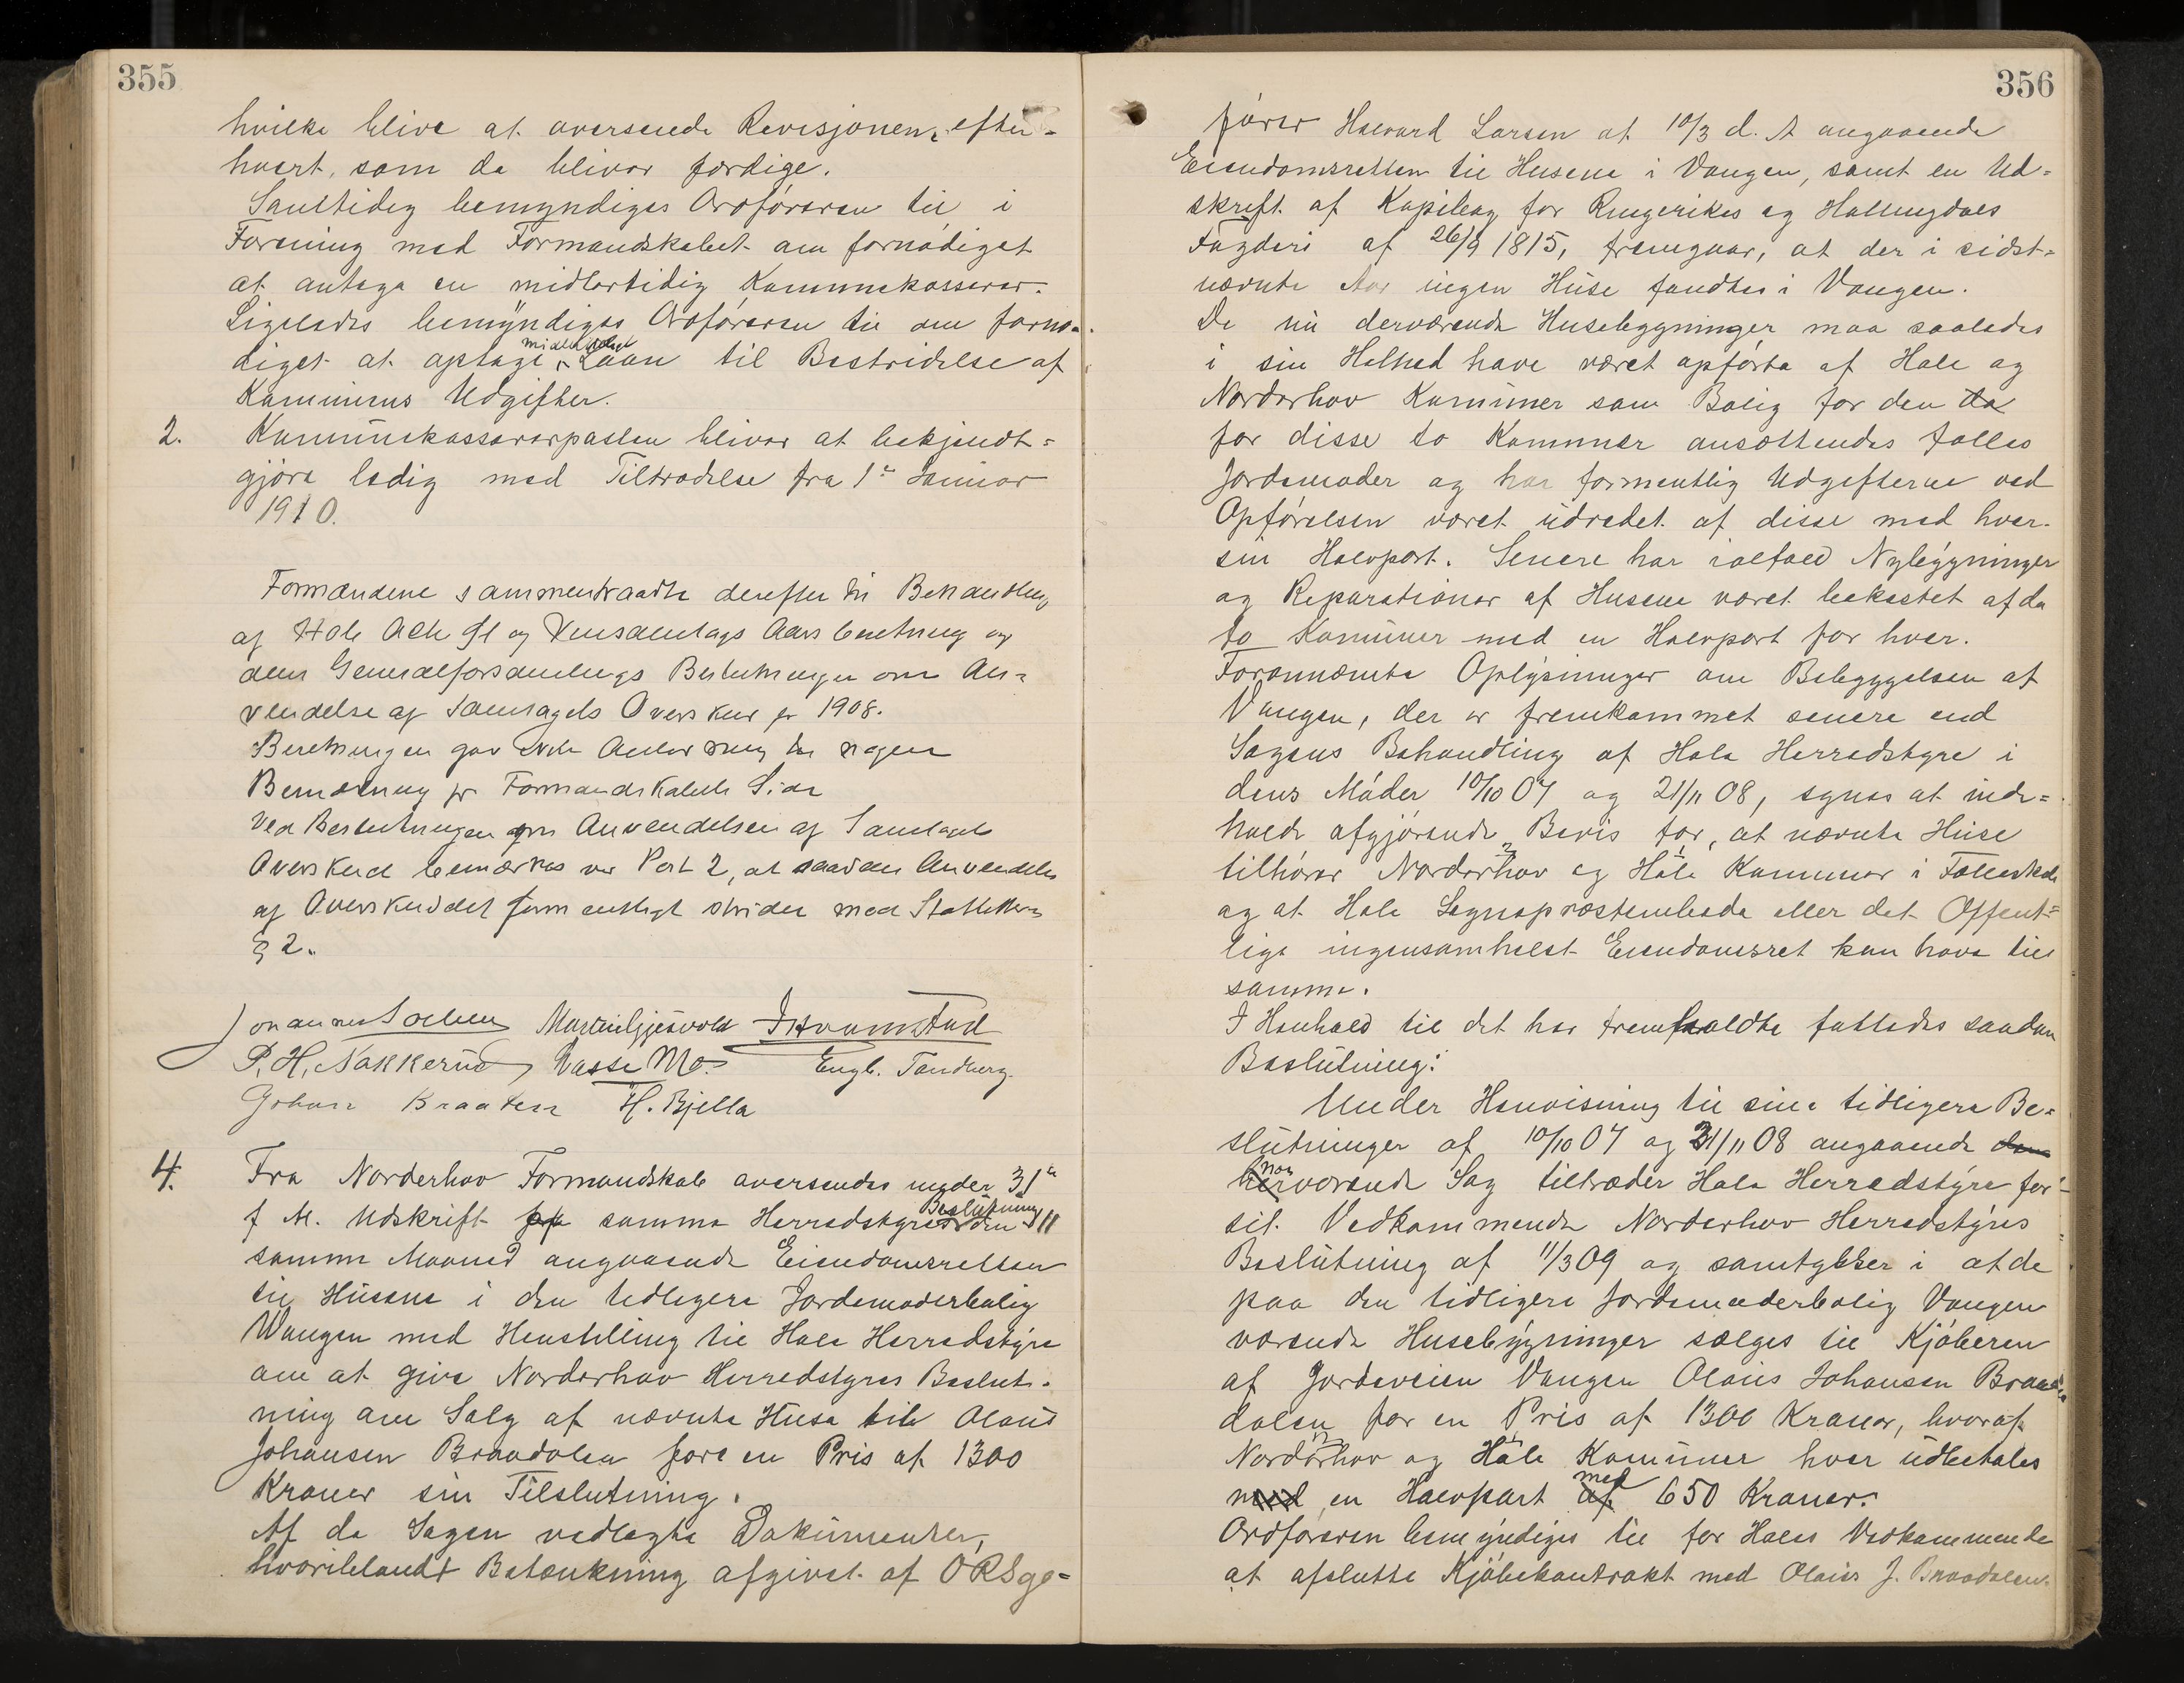 355
hvilke blive at oversende Revisjonen, efter-
hvert som de bliver færdige.
Samtidig bemyndiges Ordføreren til i
Forening med Formandskabet om fornødiget
at antage en midlertidig Kommunekasserer.
Ligeledes bemyndiges Ordføreren til om fornø-
diget at optage midlertidigt Laan til Bestridelse af
Kommunens Udgifter.
2. Kommunekassererposten bliver at bekjendt-
gjøre ledig med Tiltrædelse fra 1ste Januar
1910.
Formændene sammentraadte derefter til Behandling
af Hole og Aarsberetning og
dens Generalforsamlings Beslutninger om An-
vendelse af Samlagets Overskud for 1908.
Beretningen gav ikke Anledning til nogen
Bemærkning fra Formandskabets Side
Ved Beslutningen om Anvendelsen af Samlagets
Overskud bemærkes ved Post 2, at saadan Anvendelse
af Overskuddet formentligt strider mod Statutternes
§ 2.
Johannes Solberg Martin Gjesvold I Hvamstad
P. H. Nakkerud Lasse Mo. Engb. Tandberg
Johan Braaten H. Bjella
4. Fra Norderhov Formandskab oversendes under 31te
f. M. Udskrift af samme Herredstyres Beslutning den 11
samme Maaned angaaende Eiendomsretten
til Husene i den tidligere Jordemoderbolig
Vangen med Henstilling til Hole Herredstyre
om at give Norderhov Herredstyres Beslut-
ning om Salg af nævnte Huse til Olaus
Johansen Braadalen for en Pris af 1300
Kroner sin Tilslutning.
Af de Sagen vedlagte Dokumenter,
hvoriblandt Betænkning afgivet af ORSgs-
356
fører Halvard Larsen af 10/3 d. A angaaende
Eiendomsretten til Husene i Vangen, samt en Ud-
skrift af Kopibog for Ringerikes og Hallingdals
Fogderi af 26/9 1815, fremgaar, at der i sidst-
nævnte Aar ingen Huse fandtes i Vangen.
De nu derværende Husebygninger maa saaledes
i sin Helhed have været opførte af Hole og
Norderhov Kommuner som Bolig for den da
for disse to Kommuner ansættendes fælles
Jordemoder og har formentlig Udgifterne ved
Opførelsen været udredet af disse med hver
sin Halvpart. Senere har ialfald Nybygninger
og Reparationer af Husene været bekostet af de
to Kommuner med en Halvpart for hver.
Forannævnte Oplysninger om Bebyggelsen af
Vangen, der er fremkommet senere end
Sagens Behandling af Hole Herredstyre i
dens Møder 10/10 07 og 21/11 08, synes at inde-
holde afgjørende Bevis for, at nævnte Huse
tilhører Norderhov og Hole Kommuner i Fællesskab
og at Hole Sognepræstembede eller det Offent-
lige ingensomhelst Eiendomsret kan have til
samme.
I Henhold til det her fremholdte fattedes saadan
Beslutning:
Under Henvisning til sine tidligere Be-
slutninger af 10/10 07 og 21/11 08 angaaende
nærværende Sag tiltræder Hole Herredstyre for
sit Vedkommende Norderhov Herredstyres
Beslutning af 11/3 09 og samtykker i at de
paa den tidligere Jordemoderbolig Vangen
værende Husebygninger sælges til Kjøberen
af Jordeveien Vangen Olaus Johansen Braa-
dalen for en Pris af 1300 Kroner, hvoraf
Norderhov og Hole Kommuner hver udbetales
en Halvpart med 650 Kroner.
Ordføreren bemyndiges til for Holes Vedkommende
at afslutte Kjøbekontrakt med Olaus J. Braadalen.